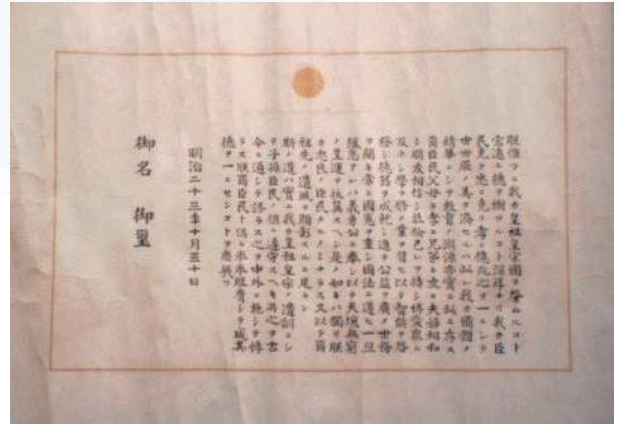 朕惟フニ我カ皇祖皇宗國ヲ肇ムルコト
宏遠ニ德ヲ樹ツルコト深厚ナリ我カ臣
民克ク忠ニ克ク孝ニ億兆心ヲ一ニシテ
世世厥ノ美ヲ濟セルハ此レ我カ國體ノ
精華ニシテ教育ノ淵源亦實ニ此ニ存ス
爾臣民父母ニ孝ニ兄弟ニ友ニ夫婦相和
シ朋友相信シ恭儉己レヲ持シ博愛衆ニ
及ホシ學ヲ修メ業ヲ習ヒ以テ智能ヲ啓
發シ德器ヲ成就シ進テ公益ヲ廣メ世務
ヲ開キ常ニ國憲ヲ重シ國法ニ遵ヒ一旦
緩急アレハ義勇公ニ奉シ以テ天壤無窮
ノ皇運ヲ扶翼スヘシ是ノ如キハ獨リ朕
カ忠良ノ臣民タルノミナラス又以テ爾
祖先ノ遺風ヲ顯彰スルニ足ラン
斯ノ道ハ實ニ我カ皇祖皇宗ノ遺訓ニシ
テ子孫臣民ノ倶ニ遵守スヘキ所之ヲ古
今ニ通シテ謬ラス之ヲ中外ニ施シテ悖
ラス朕爾臣民ト倶ニ拳拳服膺シテ咸其
德ヲ一ニセンコトヲ庶幾フ
明治二十三年十月三十日
御名 御璽